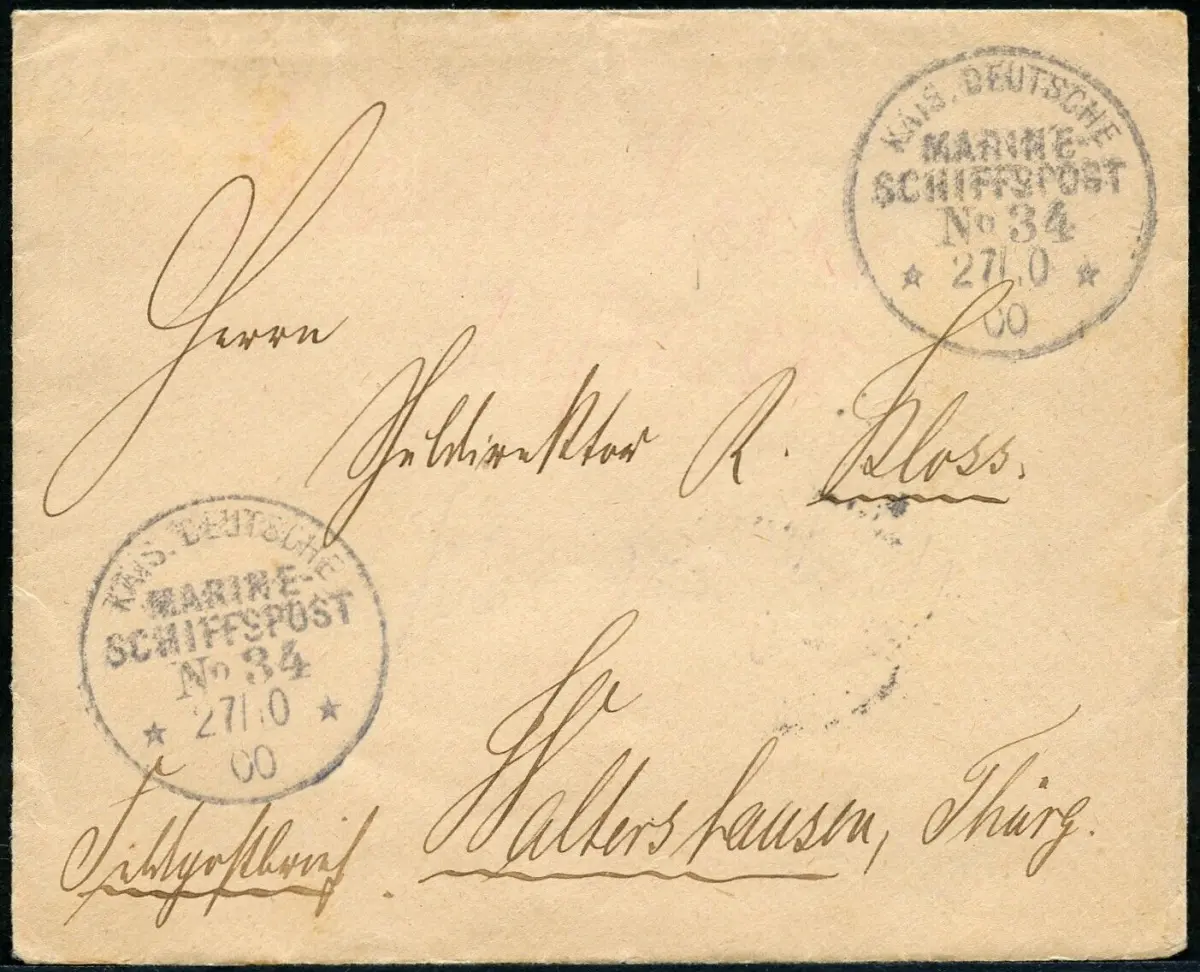 KAIS. DEUTSCHE
MARINE-
SCHIFFSPOST
No 34
00
Herrn
Schuldirektor R. Kloss.
KAIS. DEUTSCHE
MARINE-
SCHIFFSPOST
No 34
00
Waltershausen, Thürg.
Feldpostbrief.